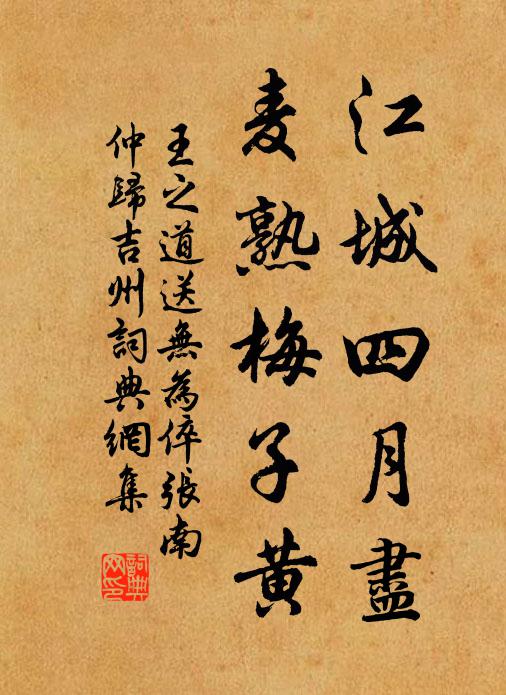 江城四月盡
麦熟梅子黄
王之道送無為倅張南
仲歸吉州詞典網集
詞典
网印